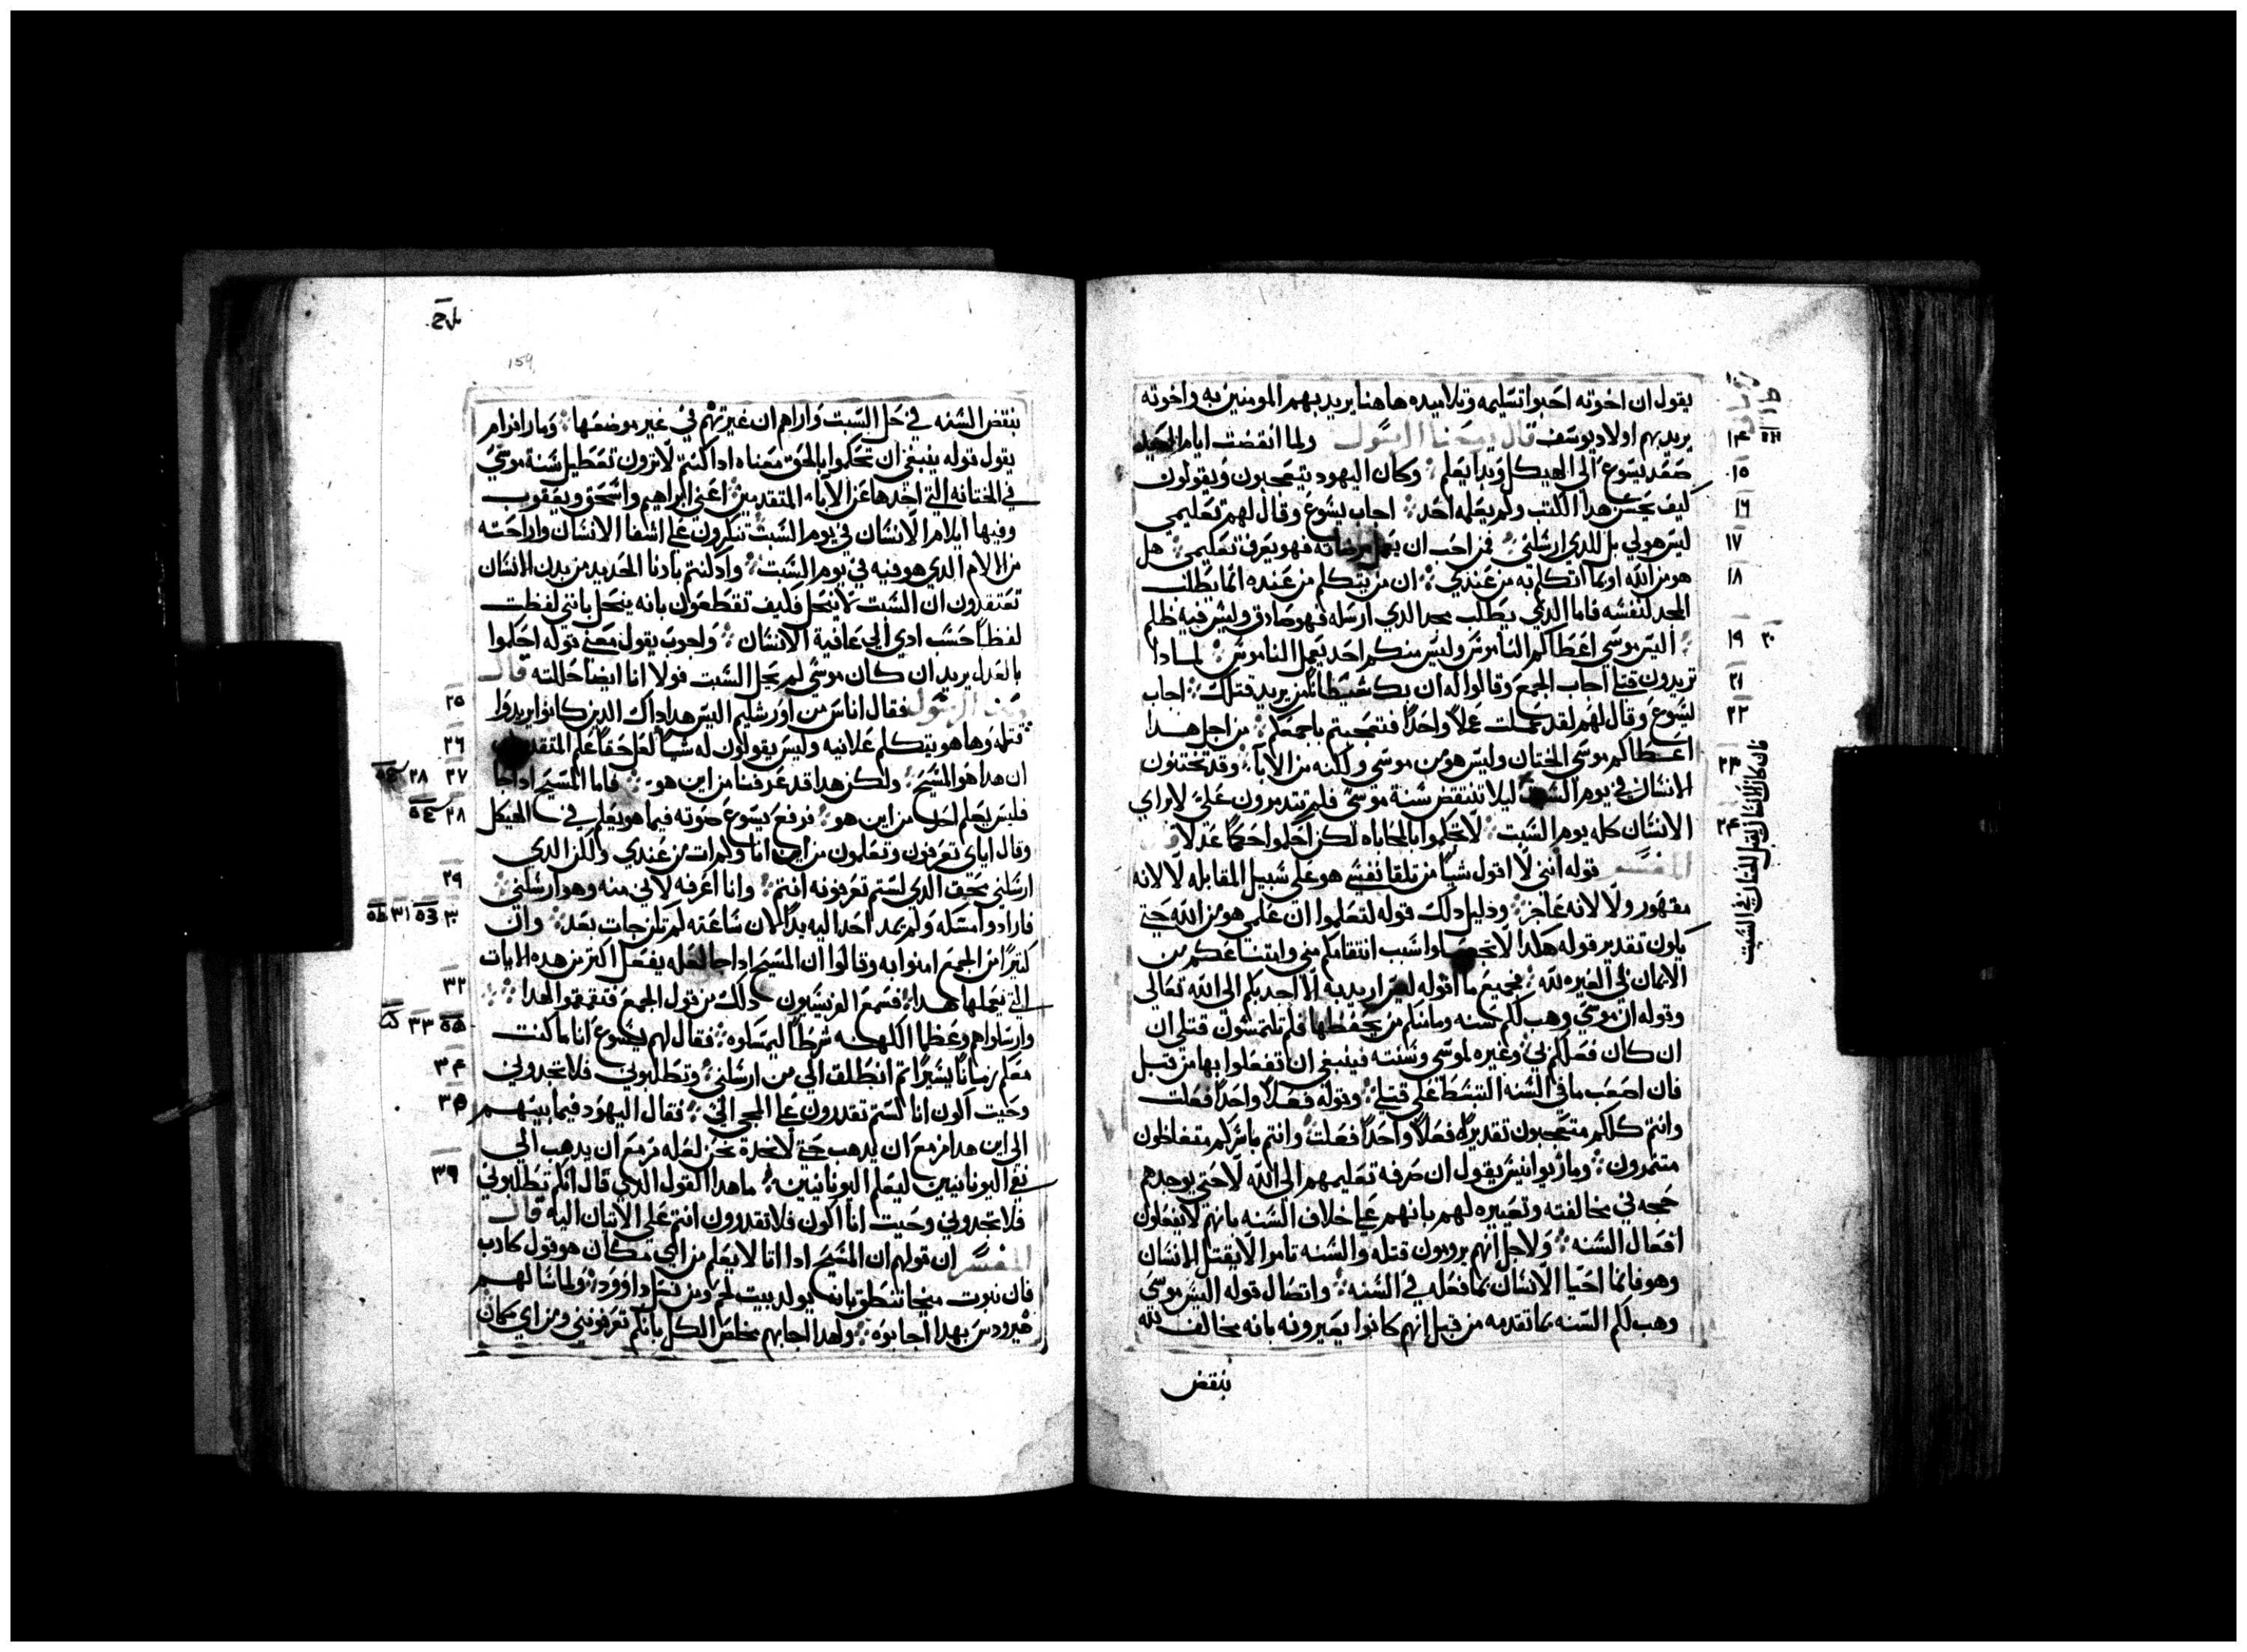 يقول ان اخوته احبوا تسليمه وتلاميده هاهنا يريد بهم المومنين به واخوته
يريد بهم اولاد يوسف قال يوحنا الرسول ولما انقضت ايام العيد
صعد يسوع الى الهيكل وبدا يعلم وكان اليهود يتعجبون ويقولون
كيف يحسن هدا الكتب ولم يعلمه احد اجاب يسوع وقال لهم تعليمي
ليس هو لي بل للدي ارسلني فمن احب ان يعمل مرضاته فهو يعرف تعليمي هل
هو من الله او انما اتكلم به من عندي ان من يتكلم من عنده انما يطلب
المجد لنفسه فاما الدي يطلب مجد الدي ارسله فهو صادق وليس فيه ظلم
اليس موسى اعطاكم الناموس وليس منكم احد يعمل الناموس لمادا
تريدون قتلي اجاب الجمع وقالوا له ان بك شيطانا من يريد قتلك اجاب
يسوع وقال لهم لقد عملت عملا واحدا فتعجبتم باجمعكم من اجل هدا
اعطاكم موسى الختان وليس هو من موسى ولكنه من الابا وقد تختنون
الانسان في يوم السبت ليلا تنتقض سنة موسى فلم تتدمرون علي لابراي
الانسان كله يوم السبت لا تحكموا بالمحاباه لكن احكموا حكما عدلا قال
المفسر قوله انني لا اقول شيا من تلقا نفسي هو على سبيل المقابله لا لانه
مقهور ولا لانه عاجز ودليل دلك قوله لتعلموا ان علمي هو من الله حتى
يكون تقدير قوله هكدا سبب انتقامكم مني وامتناعكم من
الايمان بي الغيره لله فجميع ما اقوله لكم اريد به الا اجدبكم الى الله تعالى
وقوله ان موسى وهب لكم سنه وما منكم من يحفظها فلم تلتمسون قتلي ان
ان كان فعلكم بي وغيره لموسى وسنته فينبغي ان تفعلوا بها من قبل
فان اصعب ما في السنه التبسط على قتلي وقوله فعلا واحدا فعلت
وانتم كلكم متعجبون تقديره فعلا واحدا فعلت وانتم باسركم متغاظون
متنمرون ومار يوانيس يقول ان صرفه تعليمهم الى الله لا حتى يوجدهم
حجه في مخالفته وتعييره لهم بانهم على خلاف السنه بانهم لا يفعلون
افعال السنه ولاجل انهم يرومون قتله والسنه تامر الا يقتل الانسان
وهو فانما احيا الانسان بما فعله في السنه واتصال قوله اليس موسى
وهب لكم السنه بما تقدمه من قبل انهم كانوا يعيرونه بانه مخالف لله
ينقض
١٤
١٥
١٦
١٧
١٨
١٩ ٢٠
٢١
٢٢
٢٣
٢٤
فان كان الانسان يقبل الختان في السبت
159
ينقض السنه في حل السبت واراهم ان غيرتهم في غير موضعها ومار افرام
يقول قوله ينبغي ان تحكموا بالحق معناه ادا كنتم لا ترون تعطيل سنة موسى
في الختانه التي اخدها عن الاباء المتقدمين اعني ابراهيم واسحق ويعقوب
وفيها ايلام الانسان في يوم السبت تنكرون على اشفا الانسان واراحته
من الالام الدي هو فيه في يوم السبت وادا كنتم بادنا الحديد من بدن الانسان
تعتقدون ان السبت لا ينحل فكيف تقطعون بانه ينحل بانني لفظت
لفظا حسب ادى الى عافية الانسان ولجوب يقول معنى قوله احكموا
بالعدل يريد ان كان موسى لم يحل السبت فولا انا ايضا حللته قال
يوحنا الرسول فقال اناس من اورشليم اليس هدا داك الدين كانوا يريدوا
قتله وها هو يتكلم علانيه وليس يقولون له شيا لعل حقا علم المتقدمون
ان هدا هو المسيح ولكن هدا قد عرفنا من اين هو فاما المسيح ادا جا
فليس يعلم احد من اين هو فرفع يسوع صوته فيما هو يعلم في الهيكل
وقال اياي تعرفون وتعلمون من اين انا ولم ات من عندي ولكن الدي
ارسلني محق الدي لستم تعرفونه انتم وانا اعرفه لاني منه وهو ارسلني
فارادوا مسكه ولم يمد احد اليه يدا لان ساعته لم تكن جات بعد وان
كتيرا من الجمع امنوا به وقالوا ان المسيح ادا جا لعله يفعل اكتر من هده الايات
التي يعملها هدا فسمع الفريسيون دلك من قول الجمع فتقمقموا لهدا
وارسلوا هم وعظما الكهنه شرطا ليمسكوه فقال لهم يسوع انا ماكت
معكم زمانا يسيرا تم انطلق الى من ارسلني وتطلبوني فلا تجدوني
وحيت اكون انا لستم تقدرون على المجي الي فقال اليهود فيما بينهم
الى اين هدا مزمع ان يدهب حتى لا نجده نحن لعله مزمع ان يدهب الى
نفي اليونانيين ليعلم اليونانيين ما هدا القول الدي قال انكم تطلبوني
فلا تجدوني وحيت انا اكون فلا تقدرون انتم على الاتيان اليه قال
المفسر ان قولهم ان المسيح ادا اتا لا يعلم من اي مكان هو قول كادب
فان نبوت ميخا تنطق بانه يولد ببيت لحم ومن نسل داوود ولما سالهم
هيرودس بهدا اجابوه ولهدا اجابهم مخلص الكل بانكم تعرفونني ومن اي مكان
٢٥
٢٦
٢٧ ٢٨
٢٨
٢٩
٣٠ ٣١
٣٢
٣٣
٣٤
٣٥
٣٦